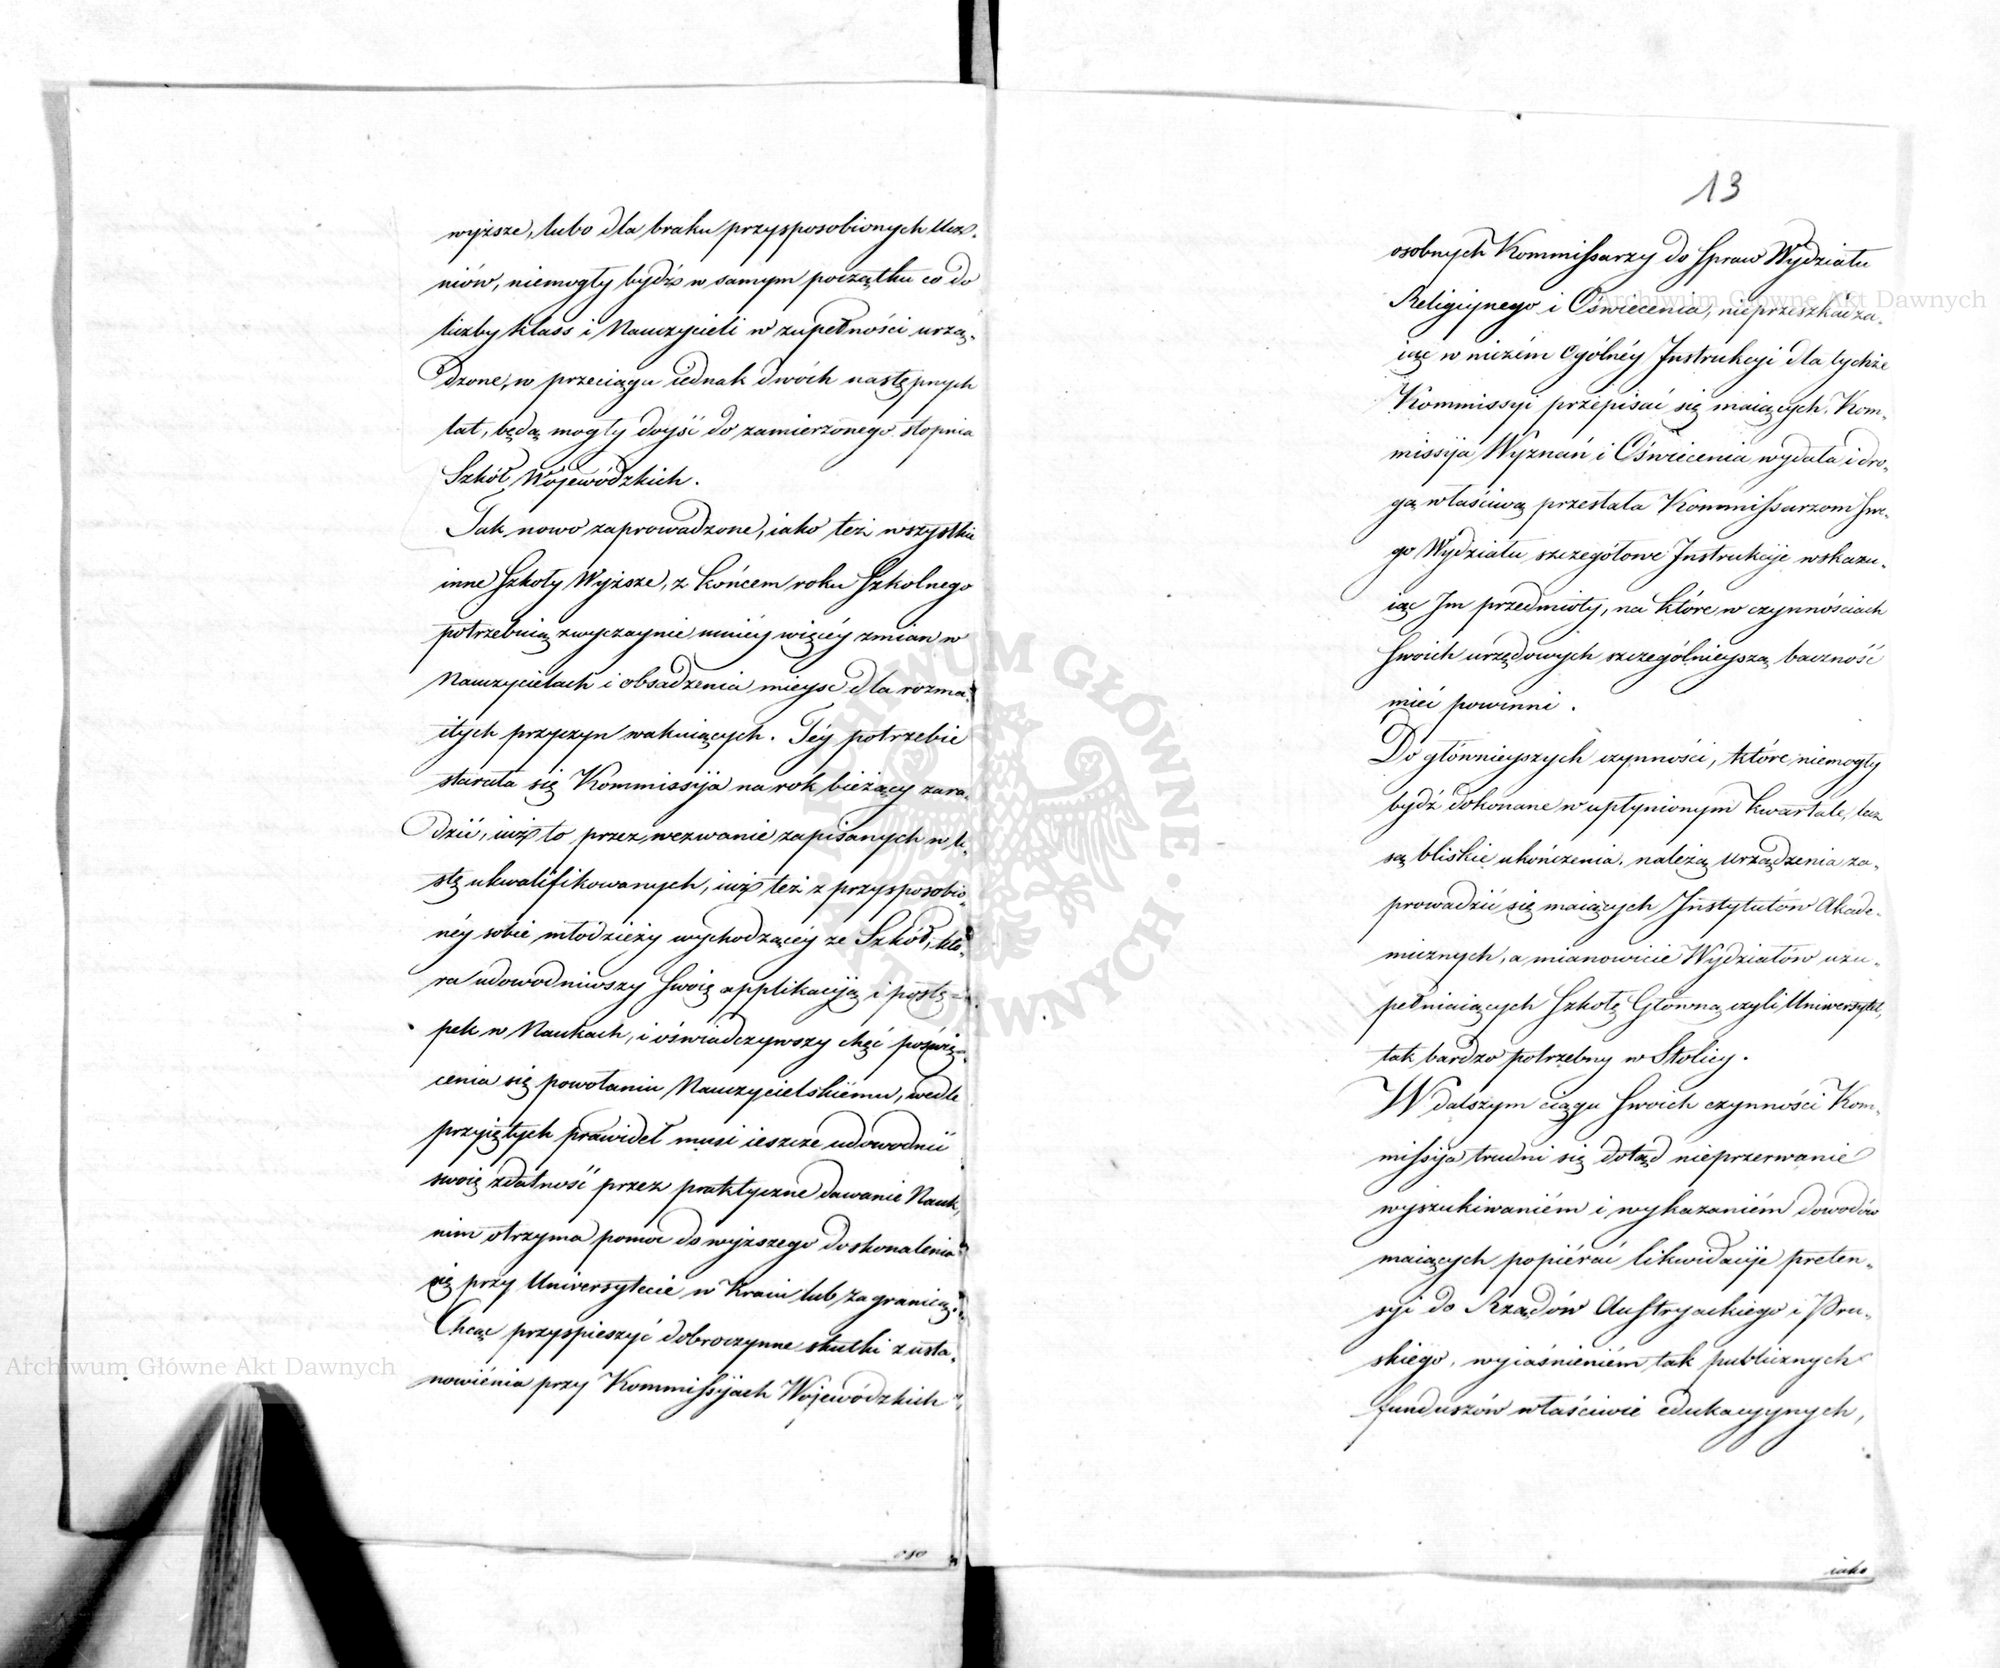 wyższe, lubo dla braku przysposobionych Ucz-
niów, niemogły bydź w samym początku co do
liczby klass i Nauczycieli w zupełności urzą-
dzone, w przeciągu iednak dwóch następnych
lat, będą mogły doyść do zamierzonego stopnia
Szkół Wojewódzkich.
Tak nowo zaprowadzone, iako też wszystkie
inne Szkoły Wyższe, z końcem roku Szkolnego
potrzebuią zwyczaynie mniéy więcéy zmian w
Nauczycielach i obsadzenia mieysc dla rozma-
itych przyczyn wakuiących. Téy potrzebie
starała się Kommissyja na rok bieżący zara-
dzić, iuż to przez wezwanie zapisanych w li-
stę ukwalifikowanych, iuż też z przysposobio-
néy sobie młodzieży wychodzącéy ze Szkół, któ-
ra udowodniwszy swoię applikacyją i postę-
pek w Naukach, i oświadczywszy chęć poświę-
cenia się powołaniu Nauczycielskiému, wedle
przyiętych prawideł musi ieszcze udowodnić
swoię zdatność przez praktyczne dawanie Nauk,
nim otrzyma pomoc do wyższego doskonalenia
się przy Uniwersytecie w Kraiu lub za granicą.
Chcąc przyspieszyć dobroczynne skutki z usta-
nowiénia przy Kommissyjach Wojewódzkich
oso
13
osobnych Kommissarzy do Spraw Wydziału
Religiynego i Oświecenia, nieprzeszkadza-
iąc w niczém Ogólnéy Instrukcyi dla tychże
Kommissyi przepisać się maiących, Kom-
missyja Wyznań i Oświecenia wydała i dro-
gą właściwą przesłała Kommissarzom Swe-
go Wydziału szczegółowe Instrukcyje wskazu-
iąc Im przedmioty, na które w czynnościach
Swoich urzędowych szczególnieyszą baczność
mieć powinni.
Do główneyszych czynności, które niemogły
bydź dokonane w upłynionym Kwartale, lecz
są bliskie ukończenia, należą urządzenia za-
prowadzić się maiących Instytutów Akade-
micznych, a mianowicie Wydziałów uzu-
pełniaiących Szkołę Główną czyli Uniwersytet,
tak bardzo potrzebny w Stolicy.
W dalszym ciągu Swoich czynności Kom-
missyja trudni się dotąd nieprzerwanie
wyszukiwaniém i wykazaniém dowodów
maiących popiérać likwidacyje preten-
syi do Rządów Austryackiego i Pru-
skiego, wyiaśnieniém tak publicznych
funduszów właściwie edukacyjnych,
iako
Archiwum Główne Akt Dawnych
Archiwum Główne Akt Dawnych
ARCHIWUM GŁÓWNE AKT DAWNYCH